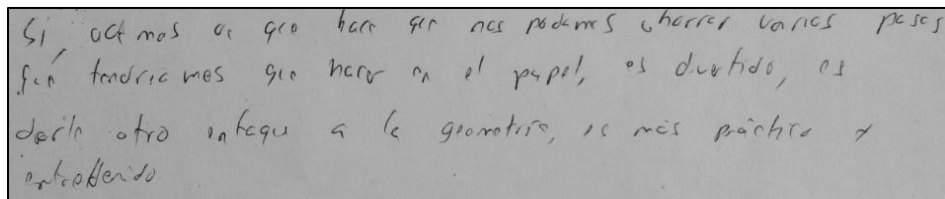 Sí, de geo hace que nos podamos ahorrar varios pasos
que tendríamos que hacer en el papel, es divertido, es
darle otro enfoque a la geometría, es más práctico y
entretenido